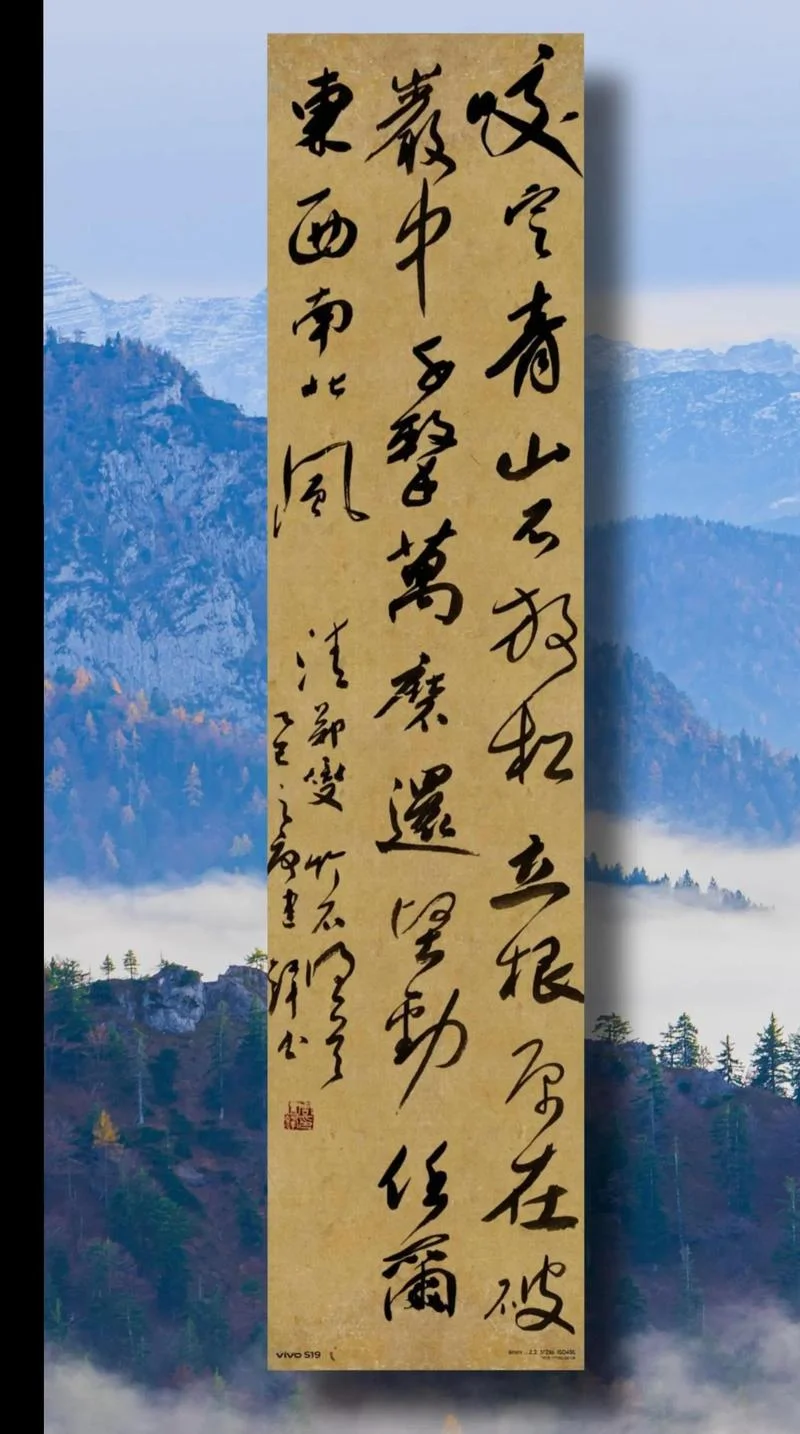 咬定青山不放松立根原在破
巖中千擊萬磨還堅勁任爾
東西南北風
清鄭燮竹石
乙巳之
書
vivo S19